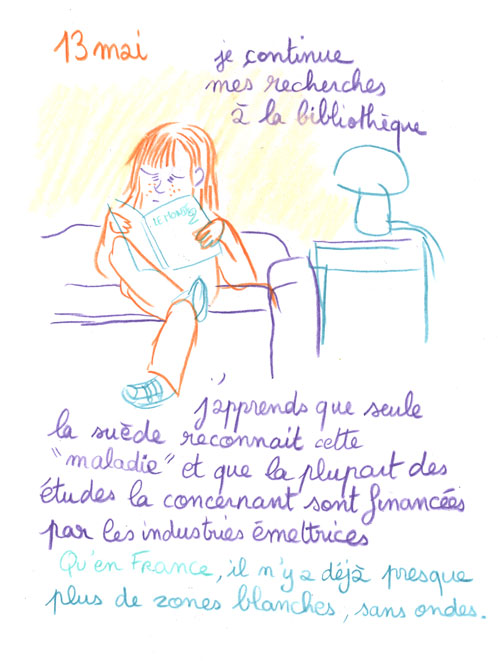 13 mai
je continue
mes recherches
à la bibliothèque
LE MONDE 2
j'apprends que seule
la suède reconnait cette
"maladie" et que la plupart des
études la concernant sont financées
par les industries émettrices
Qu'en France, il n'y a déjà presque
plus de zones blanches, sans ondes.